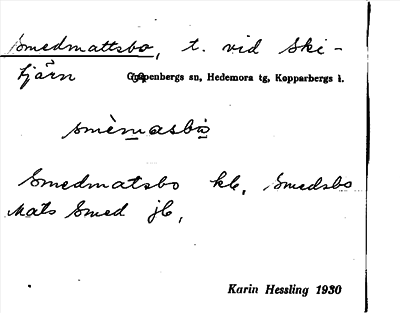 Smedmattsbo, t. vid Ski-
tjärn Garpenbergs sn, Hedemora tg, Kopparbergs l.
smèmasbo
Smedmatsbo kb, Smedsbo
Mats Smed jb,
Karin Hessling 1930